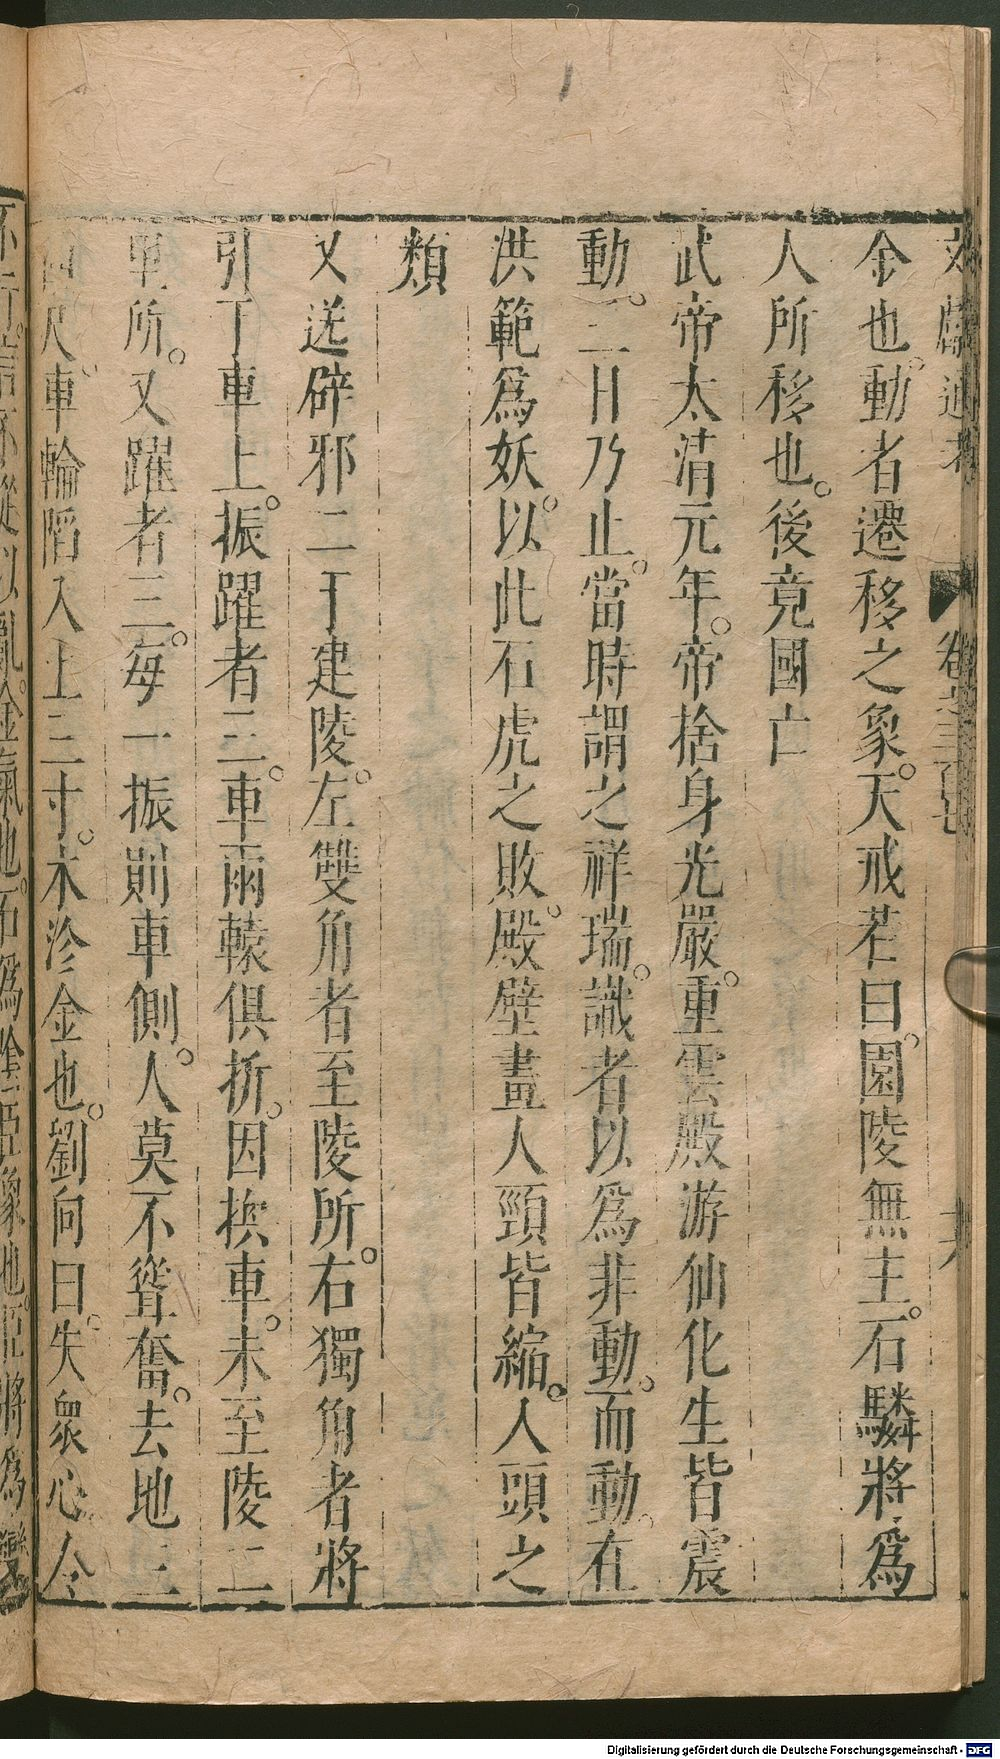 文獻通考 卷之三百七
金也動者遷移之象天戒若曰園陵無主石驎將爲
人所移也後竟國亡
武帝太清元年帝捨身光嚴重雲殿游仙化生皆震
動三日乃止當時謂之祥瑞識者以爲非動而動在
洪範爲妖以此石虎之敗殿壁畫人頸皆縮人頭之
類
又送辟邪二于建陵左雙角者至陵所右獨角者將
引于車上振躍者三車兩轅俱折因換車未至陵二
里所又躍者三每一振則車側人莫不聳奮去地二
四尺車輪陷入土三寸木沴金也劉向曰失衆心令
不行言不從以亂金氣也石爲陰臣象也臣將爲變
Digitalisierung gefördert durch die Deutsche Forschungsgemeinschaft - DFG